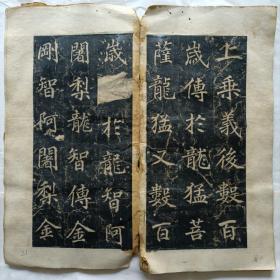 上乘義後數百
歲傳於龍猛菩
薩龍猛又數百
歲於龍智阿
闍梨龍智傳金
剛智阿闍梨金